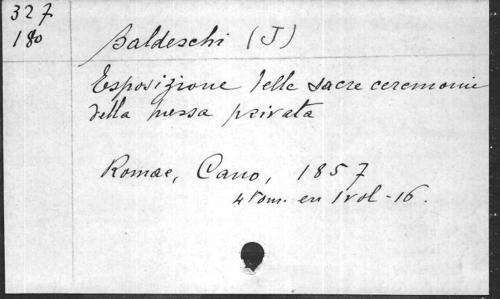 327
180
Baldeschi (J)
Esposizione delle sacre ceremonie
della messa privata
Romae, Cano, 1857
4 tom. en 1 vol - 16.